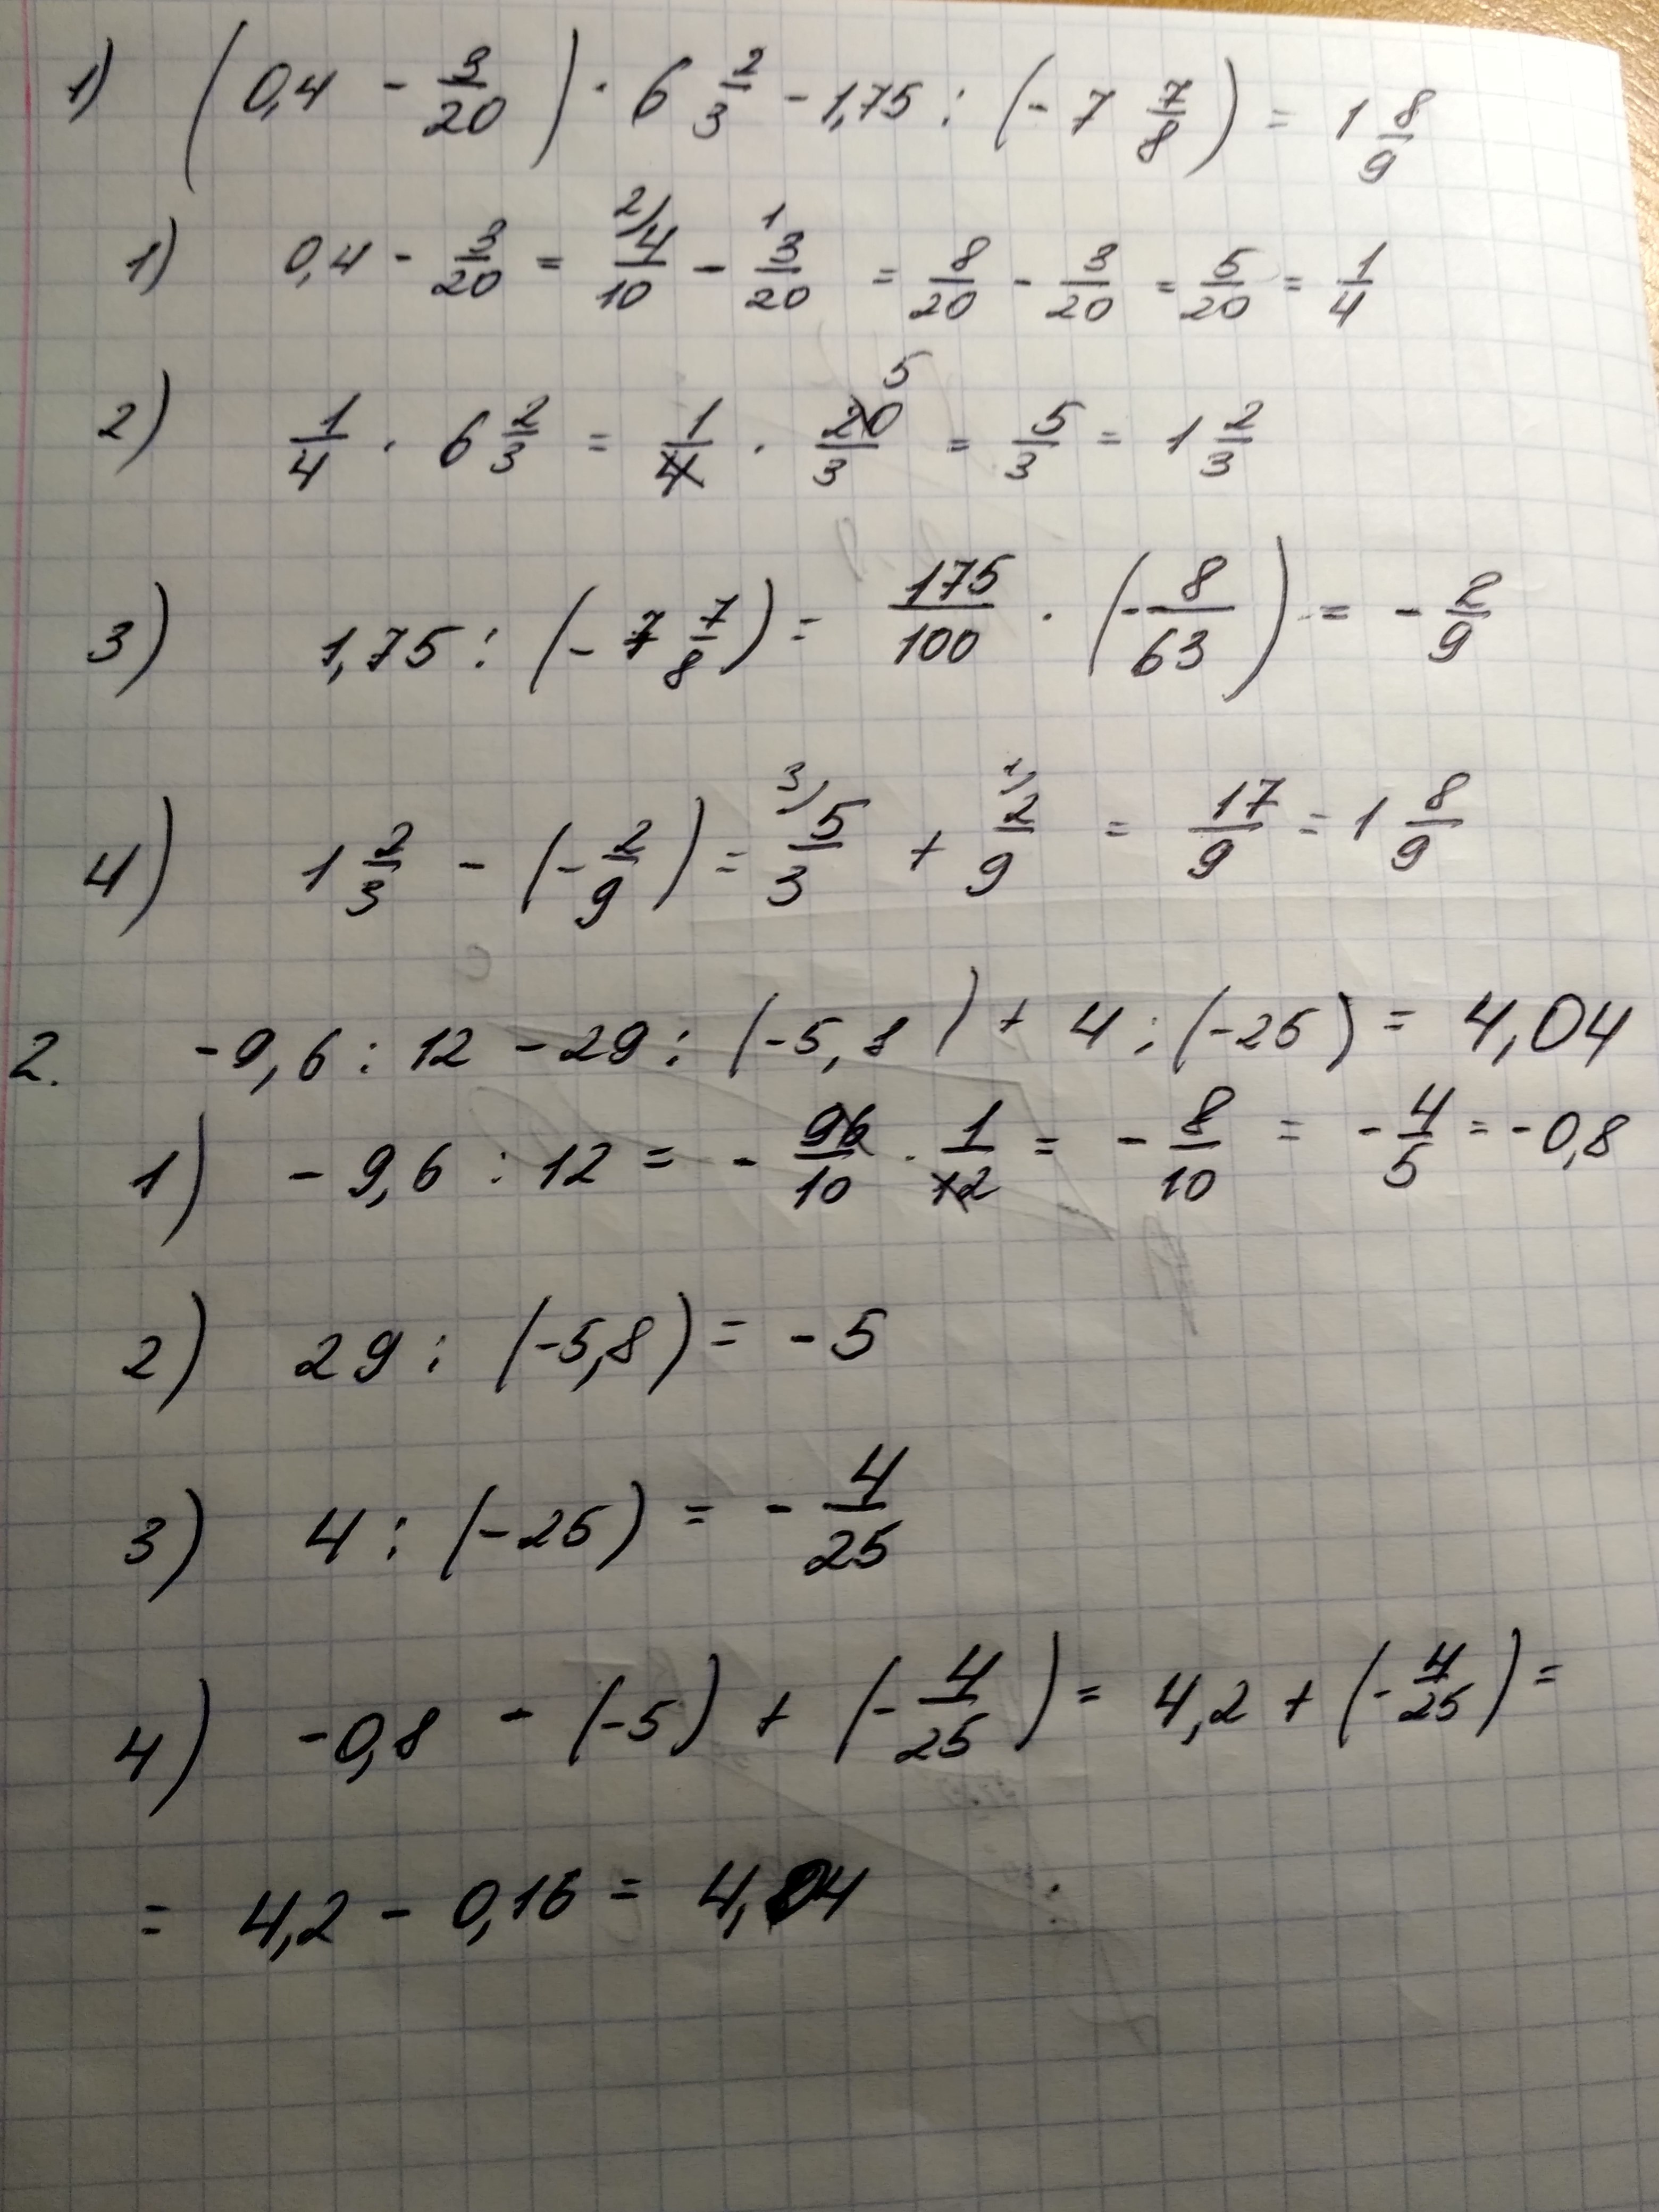 1) (0,4 - 3/20) · 6 2/3 - 1,75 : (- 7 7/8) = 1 8/9
1) 0,4 - 3/20 = 2/ 4/10 - 1 3/20 = 8/20 - 3/20 = 5/20 = 1/4
2) 1/4 · 6 2/3 = 1/4 · 20/3 5 = 5/3 = 1 2/3
3) 1,75 : (- 7 7/8) = 175/100 · (- 8/63) = - 2/9
4) 1 2/3 - (- 2/9) = 3/ 5/3 + 1/ 2/9 = 17/9 = 1 8/9
2. -9,6 : 12 - 29 : (-5,8) + 4 : (-25) = 4,04
1) - 9,6 : 12 = - 96/10 · 1/12 = - 8/10 = - 4/5 = -0,8
2) 29 : (-5,8) = - 5
3) 4 : (-25) = - 4/25
4) -0,8 - (-5) + (- 4/25) = 4,2 + (- 4/25) =
= 4,2 - 0,16 = 4,04